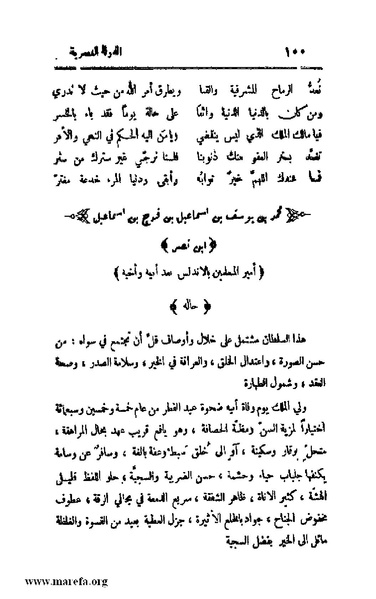 ١٠٠ الدولة النصرية
نُعدُّ الرماح للشرقية والقنا ويطرق أمر الله من حيث لا تدري
ومن كان بالدنيا الدنية واثقا على حالة يوماً فقد باء بالخسر
فيا مالك الملك الذي ليس ينقضي ويا من اليه الحكم في النهي والأمر
تغمَّد بستر العفو منك ذنوبنا فلسنا نرجّي غير سترك من ستر
فما عندك اللهمَّ خيرٌ ثوابهُ وأبقى ودنيا المرء خدعة مغترّ
محمد بن يوسف بن اسماعيل بن فرج بن اسماعيل
﴿ ابن نصر ﴾
﴿ أمير المسلمين بالاندلس بعد أبيه وأخيه ﴾
﴿ حاله ﴾
هذا السلطان مشتمل على خلال وأوصاف قلَّ أن تجتمع في سواه : من
حسن الصورة ، واعتدال الخلق ، والعراقة في الخير ، وسلامة الصدر ، وصحة
العقد ، وشمول الطهارة
ولي الملك يوم وفاة أبيه ضحوة عيد الفطر من عام خمسة وخمسين وسبعمائة
اختياراً لمزية السنّ ومظنّة الحصافة ، وهو يافع قريب عهد بحال المراهقة ،
متحلّ بوقار وسكينة ، آوٍ الى خُلق سَبط وعفة بالغة ، وسافرٌ عن وسامة
يكنفها جلباب حياء وحشمة ، حسن الضريبة والسجيَّة ، حلو اللفظ قليل
الهشة ، كثير الاناة ، ظاهر الشفقة ، سريع الدمعة في مجالي الرقة ، عطوف
مخفوض الجناح ، جواد بالأثيرة ، جزل العطية بعيد من القسوة والغلظة
مائل الى الخير بفضل السجية
www.marefa.org